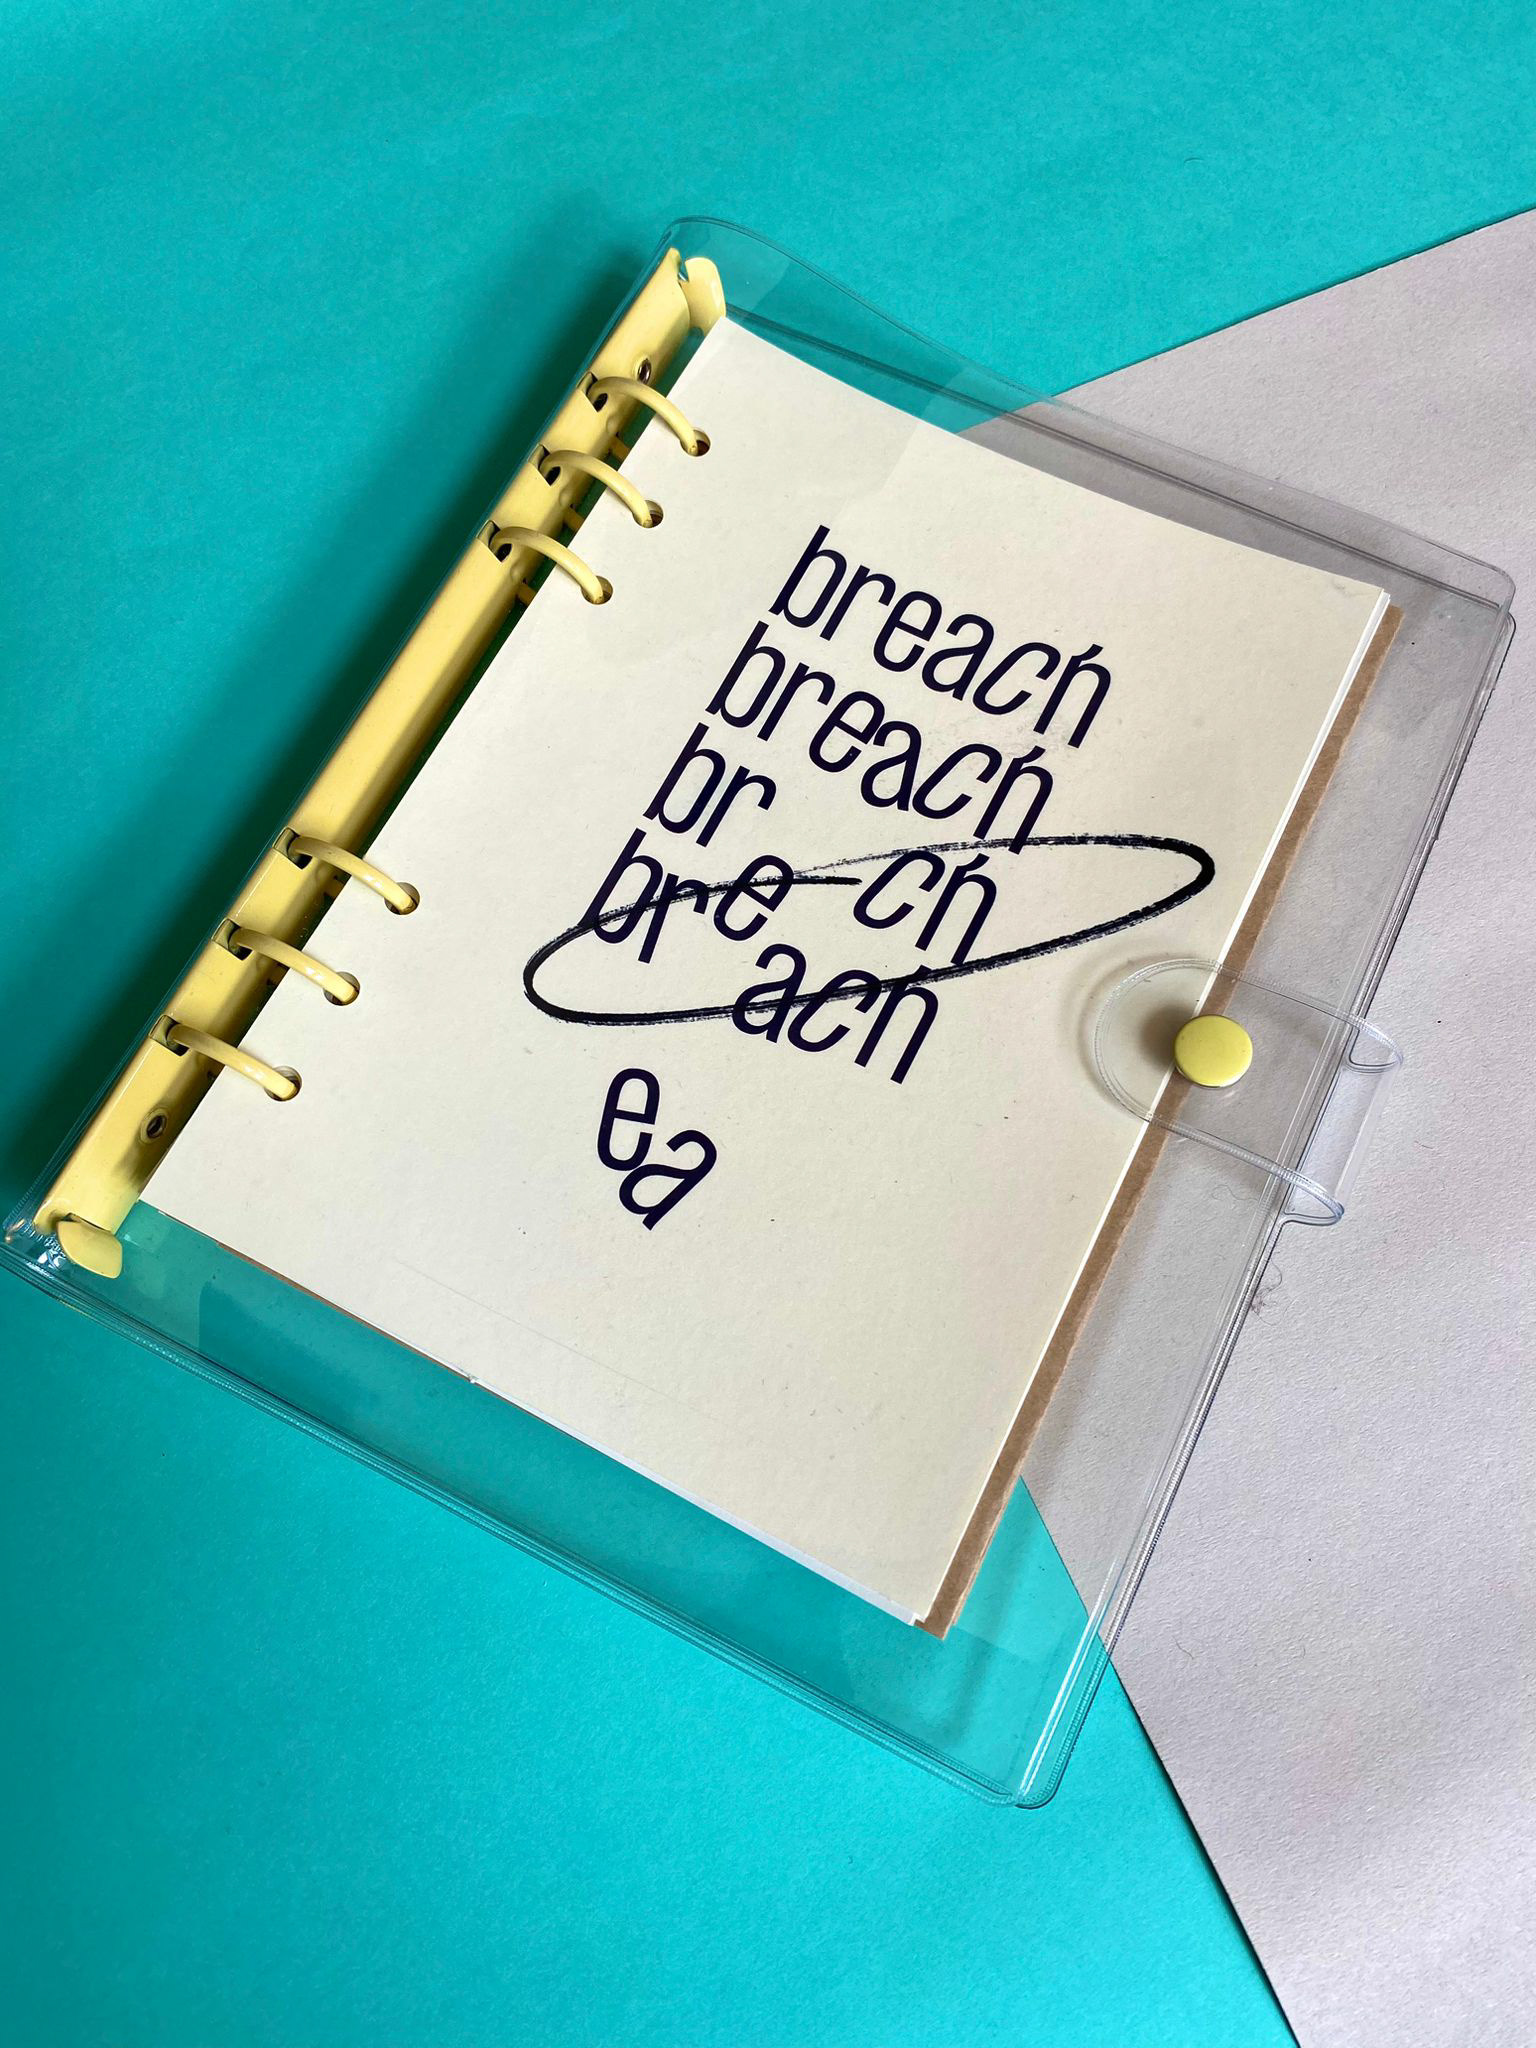 breach
breach
br ch
breach
ea